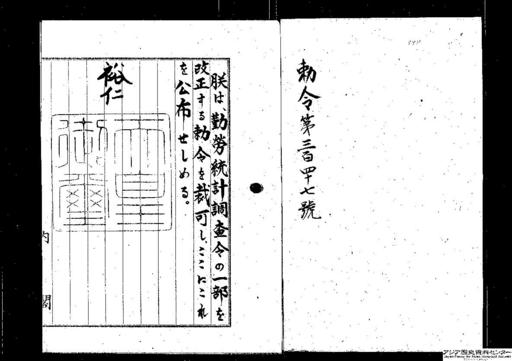 勅令第三百四十七號
朕は、勤勞統計調査令の一部を
改正する勅令を裁可し、ここにこれ
を公布せしめる。
裕仁
天皇御璽
内閣
アジア歴史資料センター